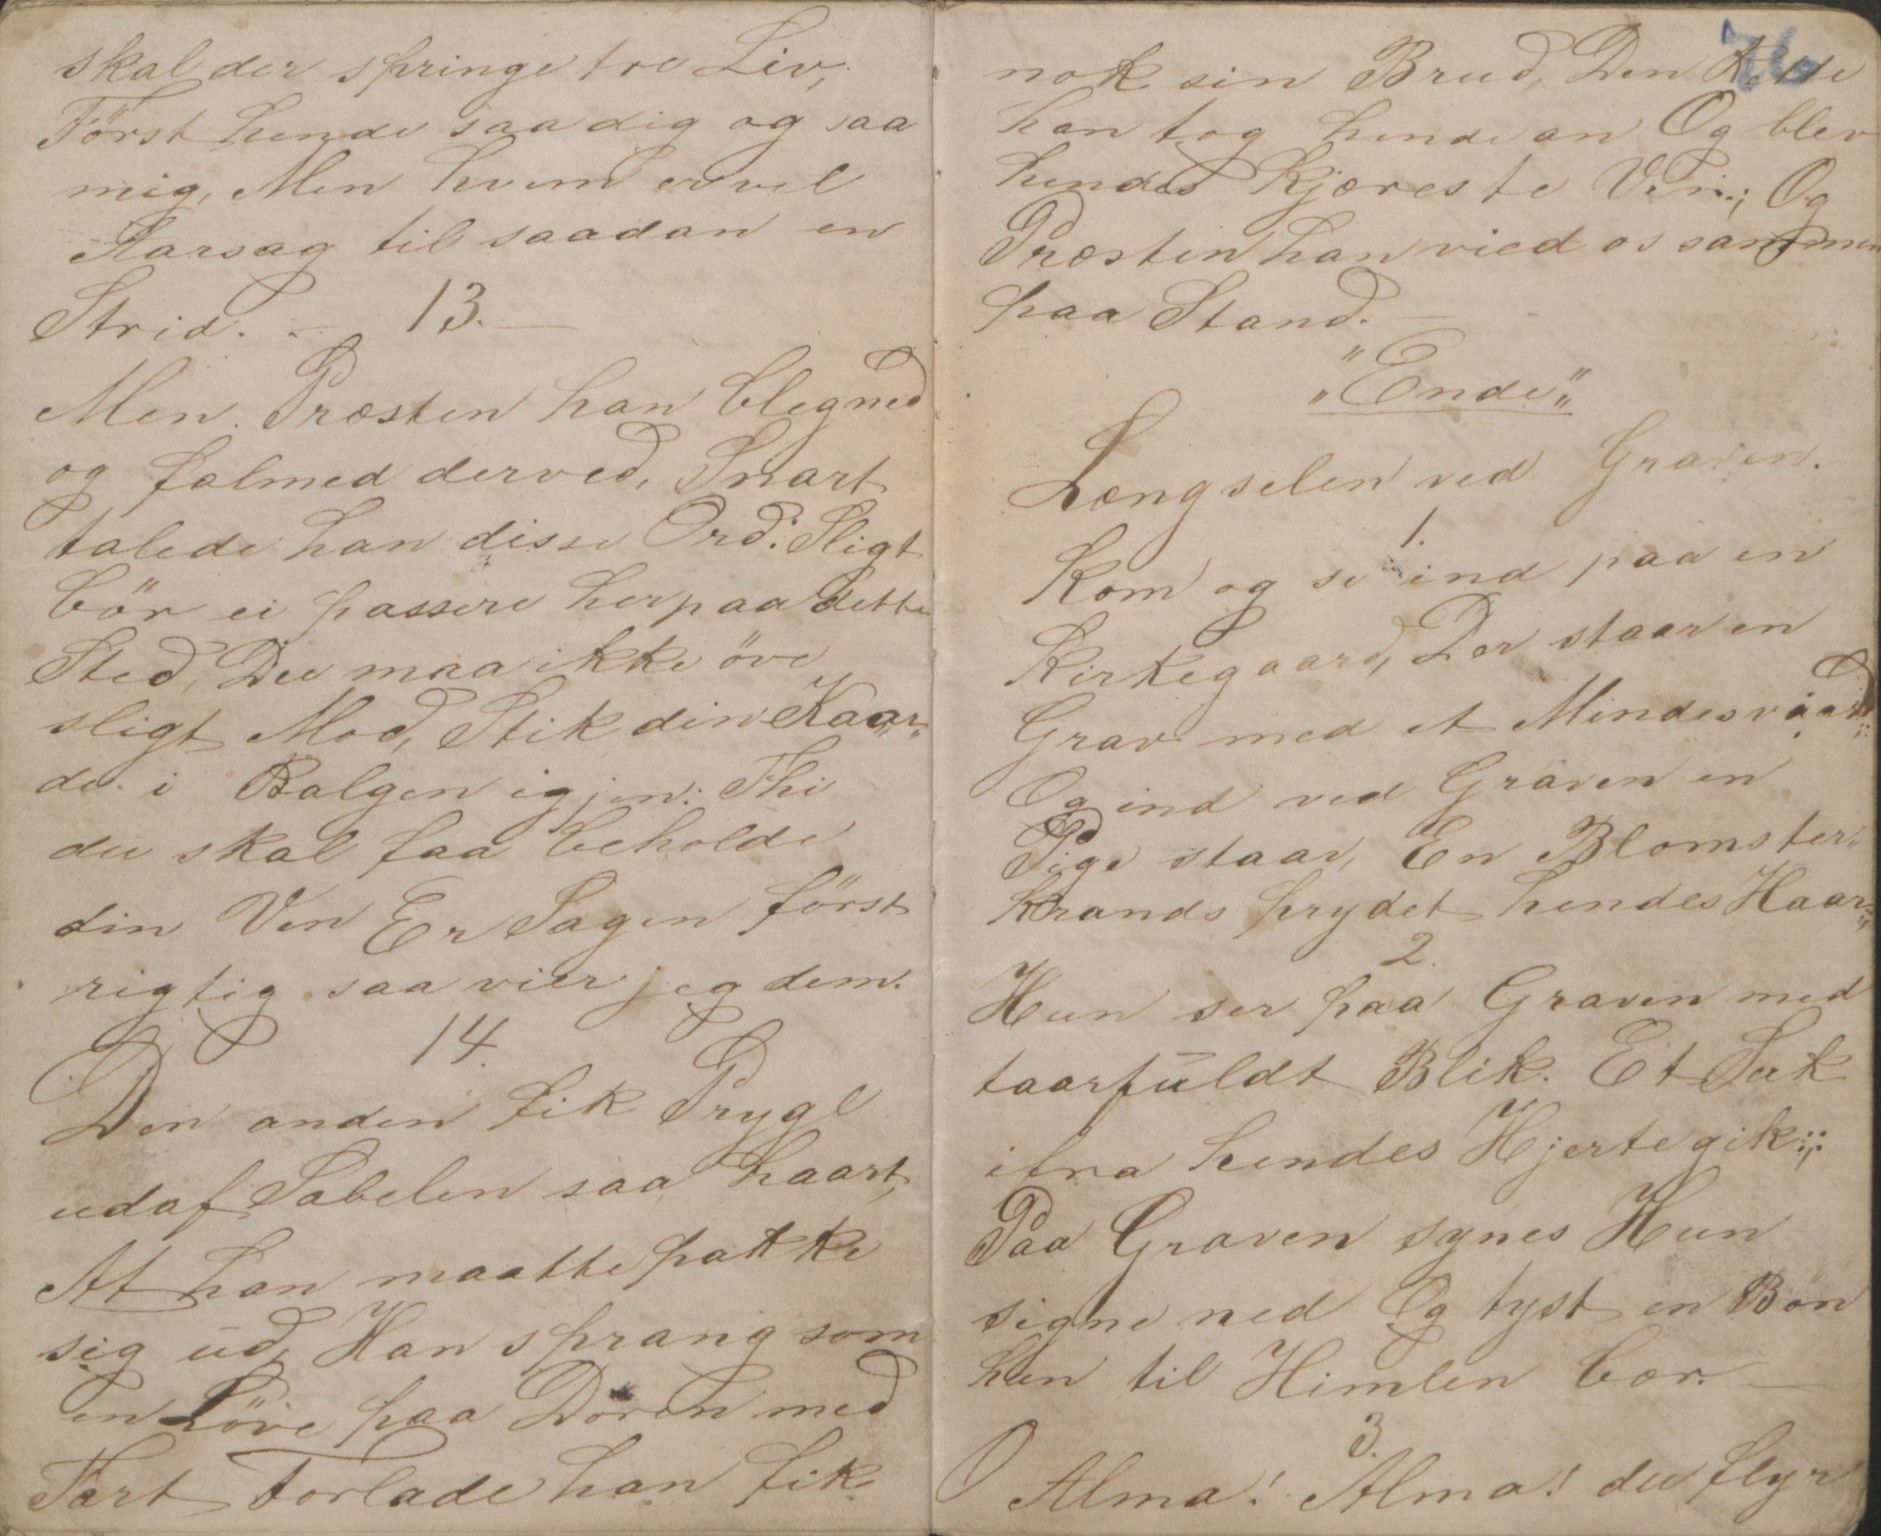 skal der springe tre Liv,
Först hende saa dig og saa
mig, Men hvem er vel
Aarsag til saadan en
Strid. - 13. -
Men Præsten han blegned
og falmed derved, Snart
talede han disse Ord: Sligt
bör ei passere her paa dette
Sted, Du maa ikke öve
sligt Mod, Stik din Kaar-
de i Balgen igjen: Thi
du skal faa beholde
din Ven Er Sagen först
rigtig saa vier jeg dem.
14.
Den anden fik Prygl
udaf Sabelen saa haart,
At han maatte pakke
sig ud, Han sprang som
en Löve paa Dören med
Fart Forlade han fik
76
nok sin Brud, Den
han tog hende an Og blev
hendes kjæreste Ven; Og
Præsten han vied os sammen
paa Stand. -
"Ende"
Længselen ved Graven.
1.
Kom og se ind paa en
Kirkegaard, Der staar en
Grav med et Mindesvaard
Og ind ved Graven en
Pige staar, En Blomster-
krands prydet hendes Haar
2.
Hun ser paa Graven med
taarfuldt Blik. Et Suk
ifra hendes Hjerte gik
Paa Graven synes Hun
signe ned Og tyst en Bön
hen til Himlen bær. -
3.
O Alma! Alma! du flyr